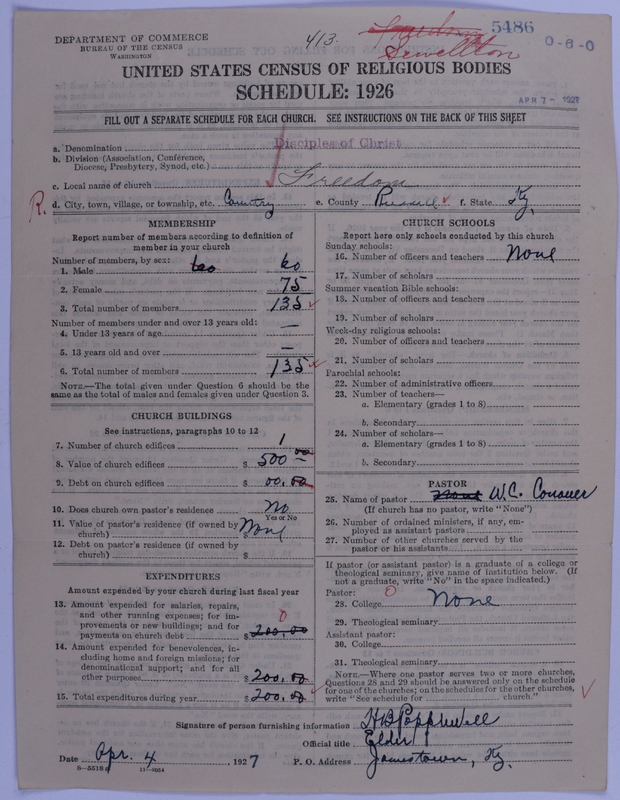 DEPARTMENT OF COMMERCE
BUREAU OF THE CENSUS
WASHINGTON
413.
Freedom
Sewellton
5486
0-6-0
UNITED STATES CENSUS OF RELIGIOUS BODIES
SCHEDULE: 1926
APR 7 - 1927
FILL OUT A SEPARATE SCHEDULE FOR EACH CHURCH. SEE INSTRUCTIONS ON THE BACK OF THIS SHEET
a. Denomination Disciples of Christ
b. Division (Association, Conference, Diocese, Presbytery, Synod, etc.)
c. Local name of church Freedom
R. d. City, town, village, or township, etc. Country e. County Russell f. State Ky.
MEMBERSHIP
Report number of members according to definition of member in your church
Number of members, by sex:
1. Male 60 60
2. Female 75
3. Total number of members 135
Number of members under and over 13 years old:
4. Under 13 years of age —
5. 13 years old and over —
6. Total number of members 135
NOTE.—The total given under Question 6 should be the same as the total of males and females given under Question 3.
CHURCH BUILDINGS
See instructions, paragraphs 10 to 12
7. Number of church edifices 1
8. Value of church edifices $ 500 00
9. Debt on church edifices $ 00.00
10. Does church own pastor's residence No
Yes or No
11. Value of pastor's residence (if owned by church) $ None
12. Debt on pastor's residence (if owned by church) $
EXPENDITURES
Amount expended by your church during last fiscal year
13. Amount expended for salaries, repairs, and other running expenses; for improvements or new buildings; and for payments on church debt $ 200.00 0
14. Amount expended for benevolences, including home and foreign missions; for denominational support; and for all other purposes $ 200.00
15. Total expenditures during year $ 200.00
CHURCH SCHOOLS
Report here only schools conducted by this church
Sunday schools:
16. Number of officers and teachers None
17. Number of scholars
Summer vacation Bible schools:
18. Number of officers and teachers
19. Number of scholars
Week-day religious schools:
20. Number of officers and teachers
21. Number of scholars
Parochial schools:
22. Number of administrative officers
23. Number of teachers—
a. Elementary (grades 1 to 8)
b. Secondary
24. Number of scholars—
a. Elementary (grades 1 to 8)
b. Secondary
PASTOR
25. Name of pastor None W.C. Conover
(If church has no pastor, write "None")
26. Number of ordained ministers, if any, employed as assistant pastors
27. Number of other churches served by the pastor or his assistants
If pastor (or assistant pastor) is a graduate of a college or theological seminary, give name of institution below. (If not a graduate, write "No" in the space indicated.)
Pastor: 0
28. College None
29. Theological seminary
Assistant pastor:
30. College
31. Theological seminary
NOTE.—Where one pastor serves two or more churches, Questions 28 and 29 should be answered only on the schedule for one of the churches; on the schedules for the other churches, write "See schedule for church."
Signature of person furnishing information H B Popplewell
Official title Elder
Date Apr. 4, 1927 P. O. Address Jamestown, Ky.